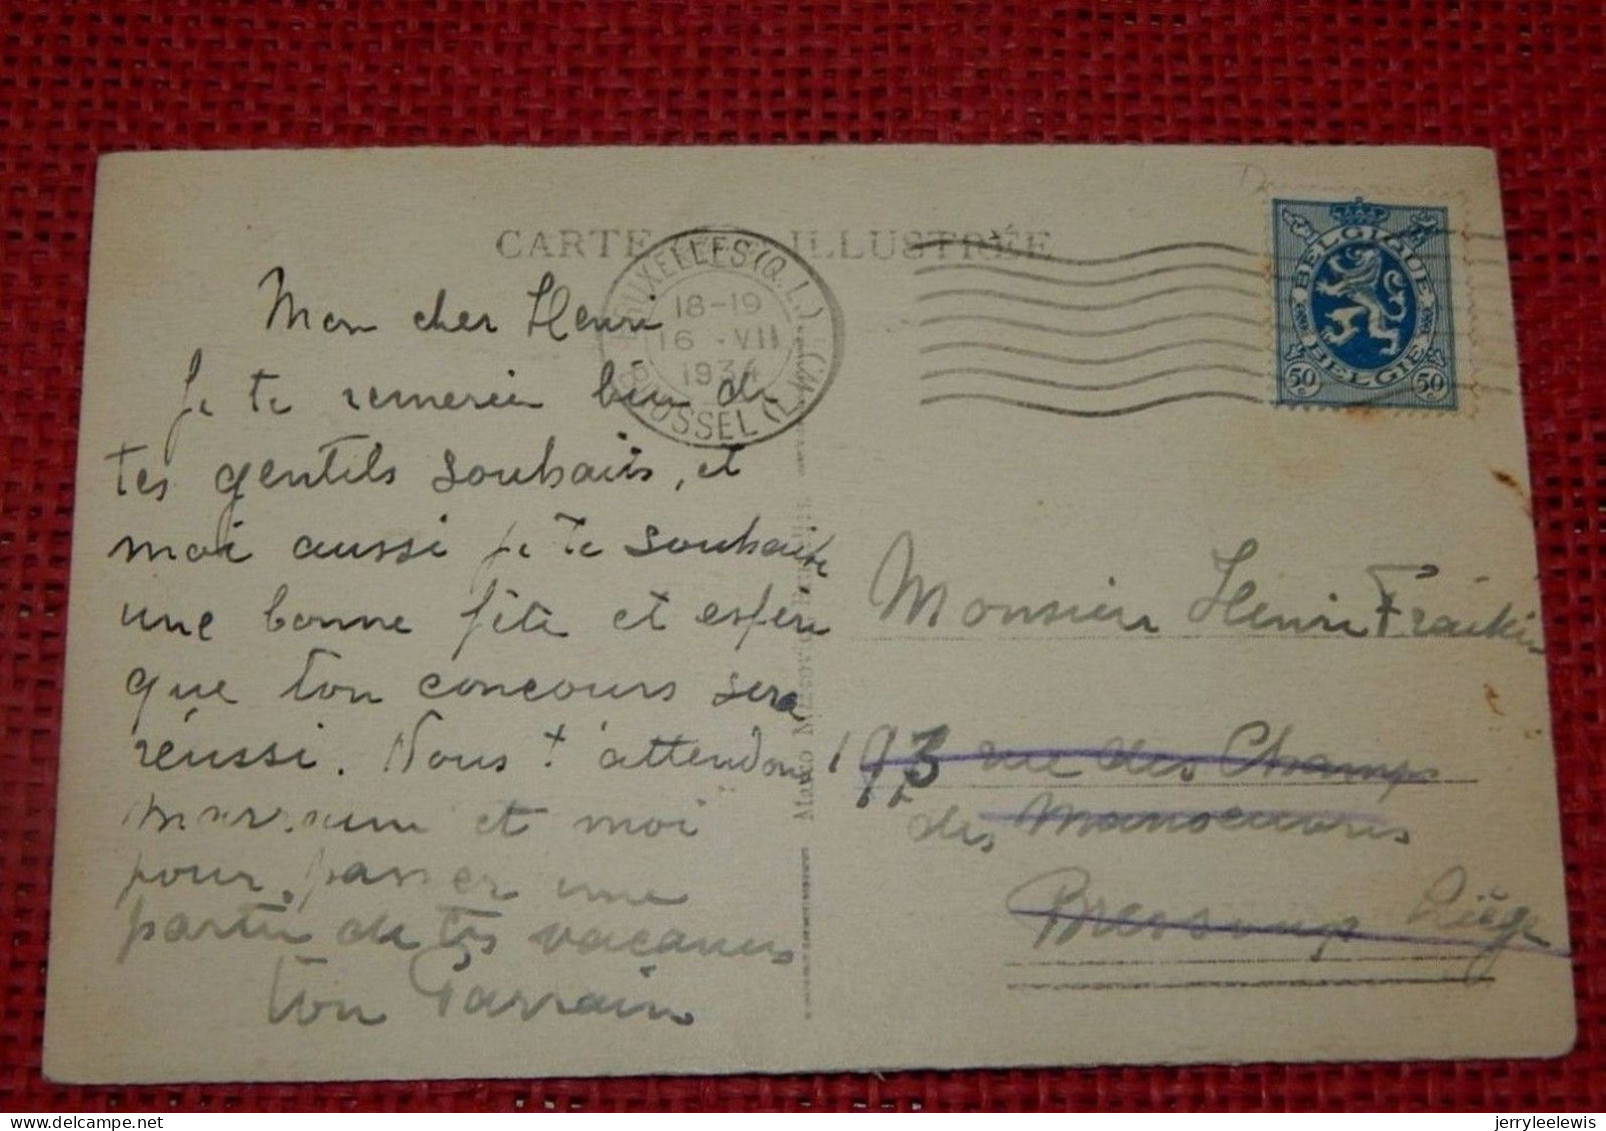 CARTE ILLUSTRÉE
BRUXELLES (Q.L.) (L.W.) BRUSSEL
18-19
16 -VII
1934
BELGIQUE
BELGIE
50 50
Mon cher Henri
Je te remercie bien de
tes gentils souhaits, et
moi aussi je te souhaite
une bonne fête et espère
que ton concours sera
réussi. Nous t'attendons
marraine et moi
pour passer une
partie de tes vacances
ton Parrain
Monsieur Henri Fraikin
193 rue des Champs
des Manoeuvres
Bressoux Liége
jerryleelewis